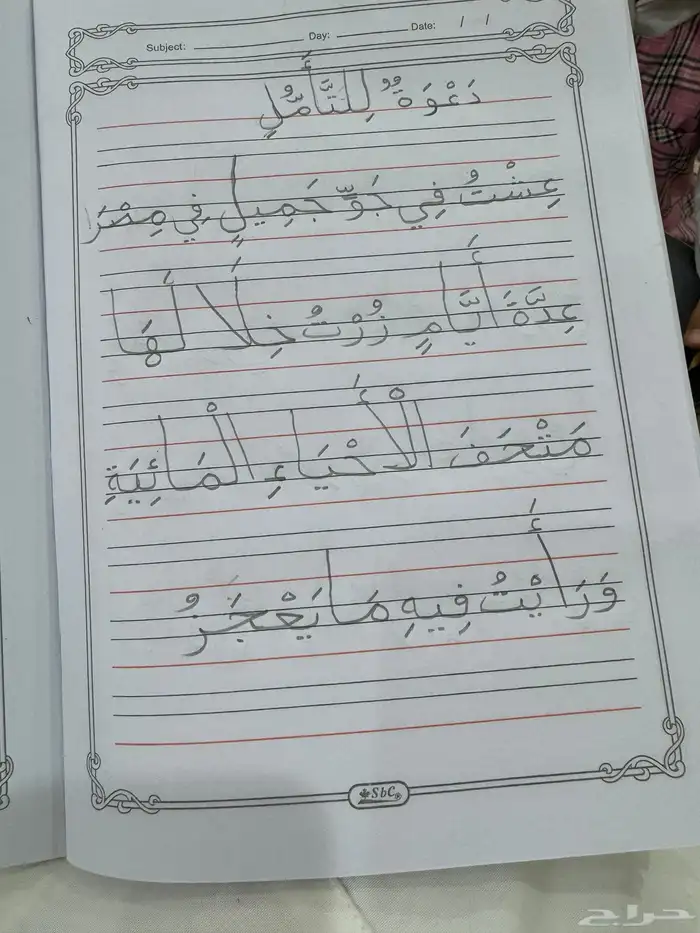 Subject: Day: Date: / /
دَعْوَةٌ لِلتَّأَمُّلِ
عِشْتُ فِي جَوٍّ جَمِيلٍ فِي مِصْرَ
عِدَّةَ أَيَّامٍ زُرْتُ خِلَالَهَا
مَتْحَفَ الْأَحْيَاءِ الْمَائِيَةِ
وَرَأَيْتُ فِيهِ مَا يَعْجَزُ
SbC
حراج